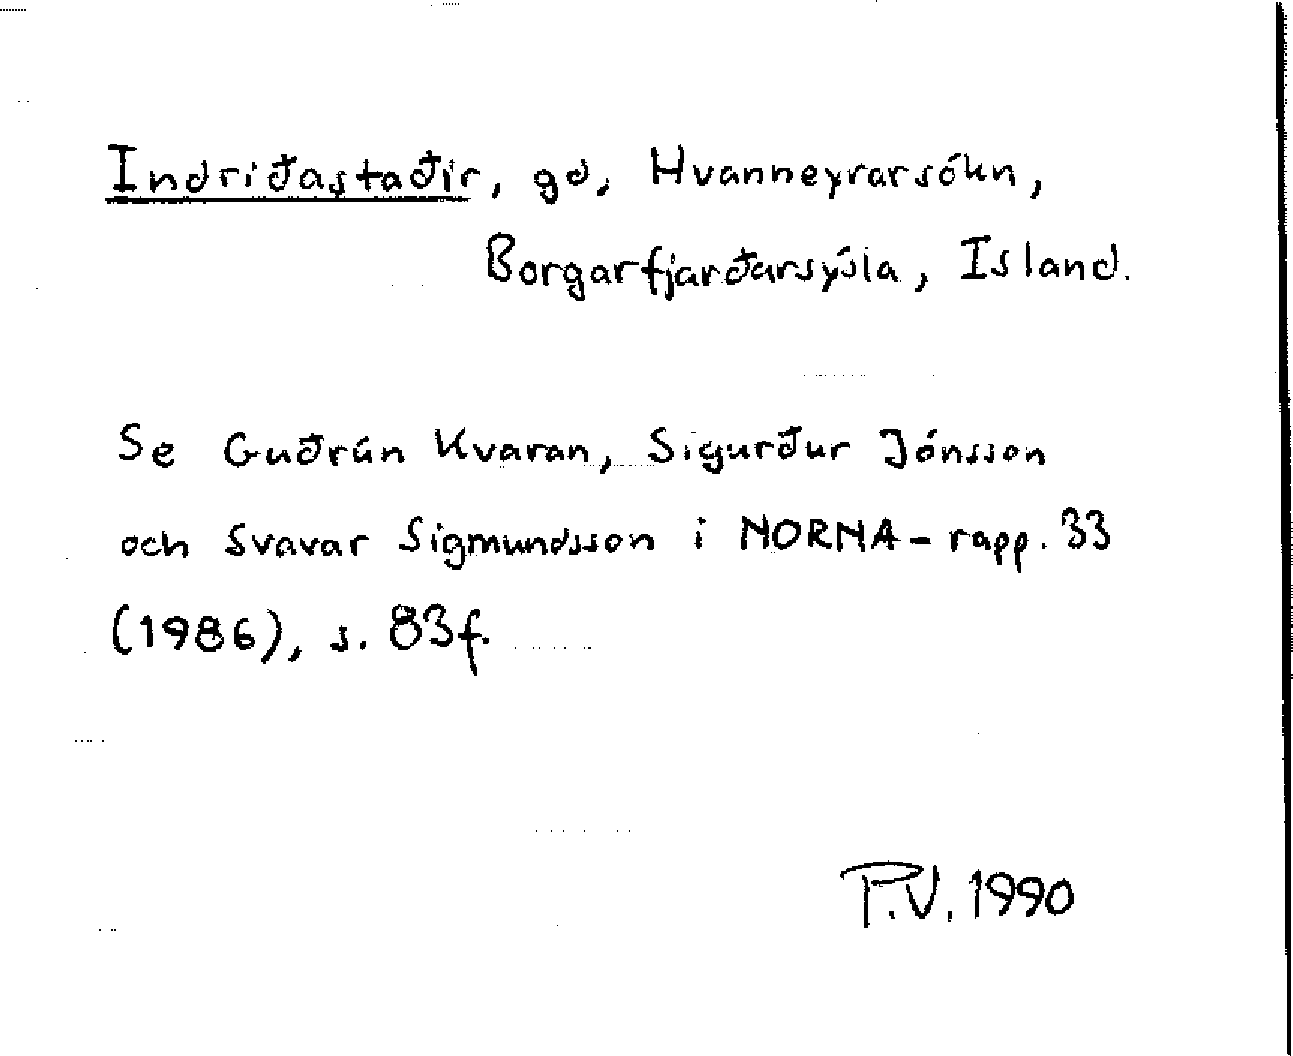 Indriðastaðir, gd, Hvanneyrarsókn,
Borgarfjarðarsýsla, Island.
Se Guðrún Kvaran, Sigurður Jónsson
och Svavar Sigmundsson i NORNA-rapp. 33
(1986), s. 83f.
P.V. 1990